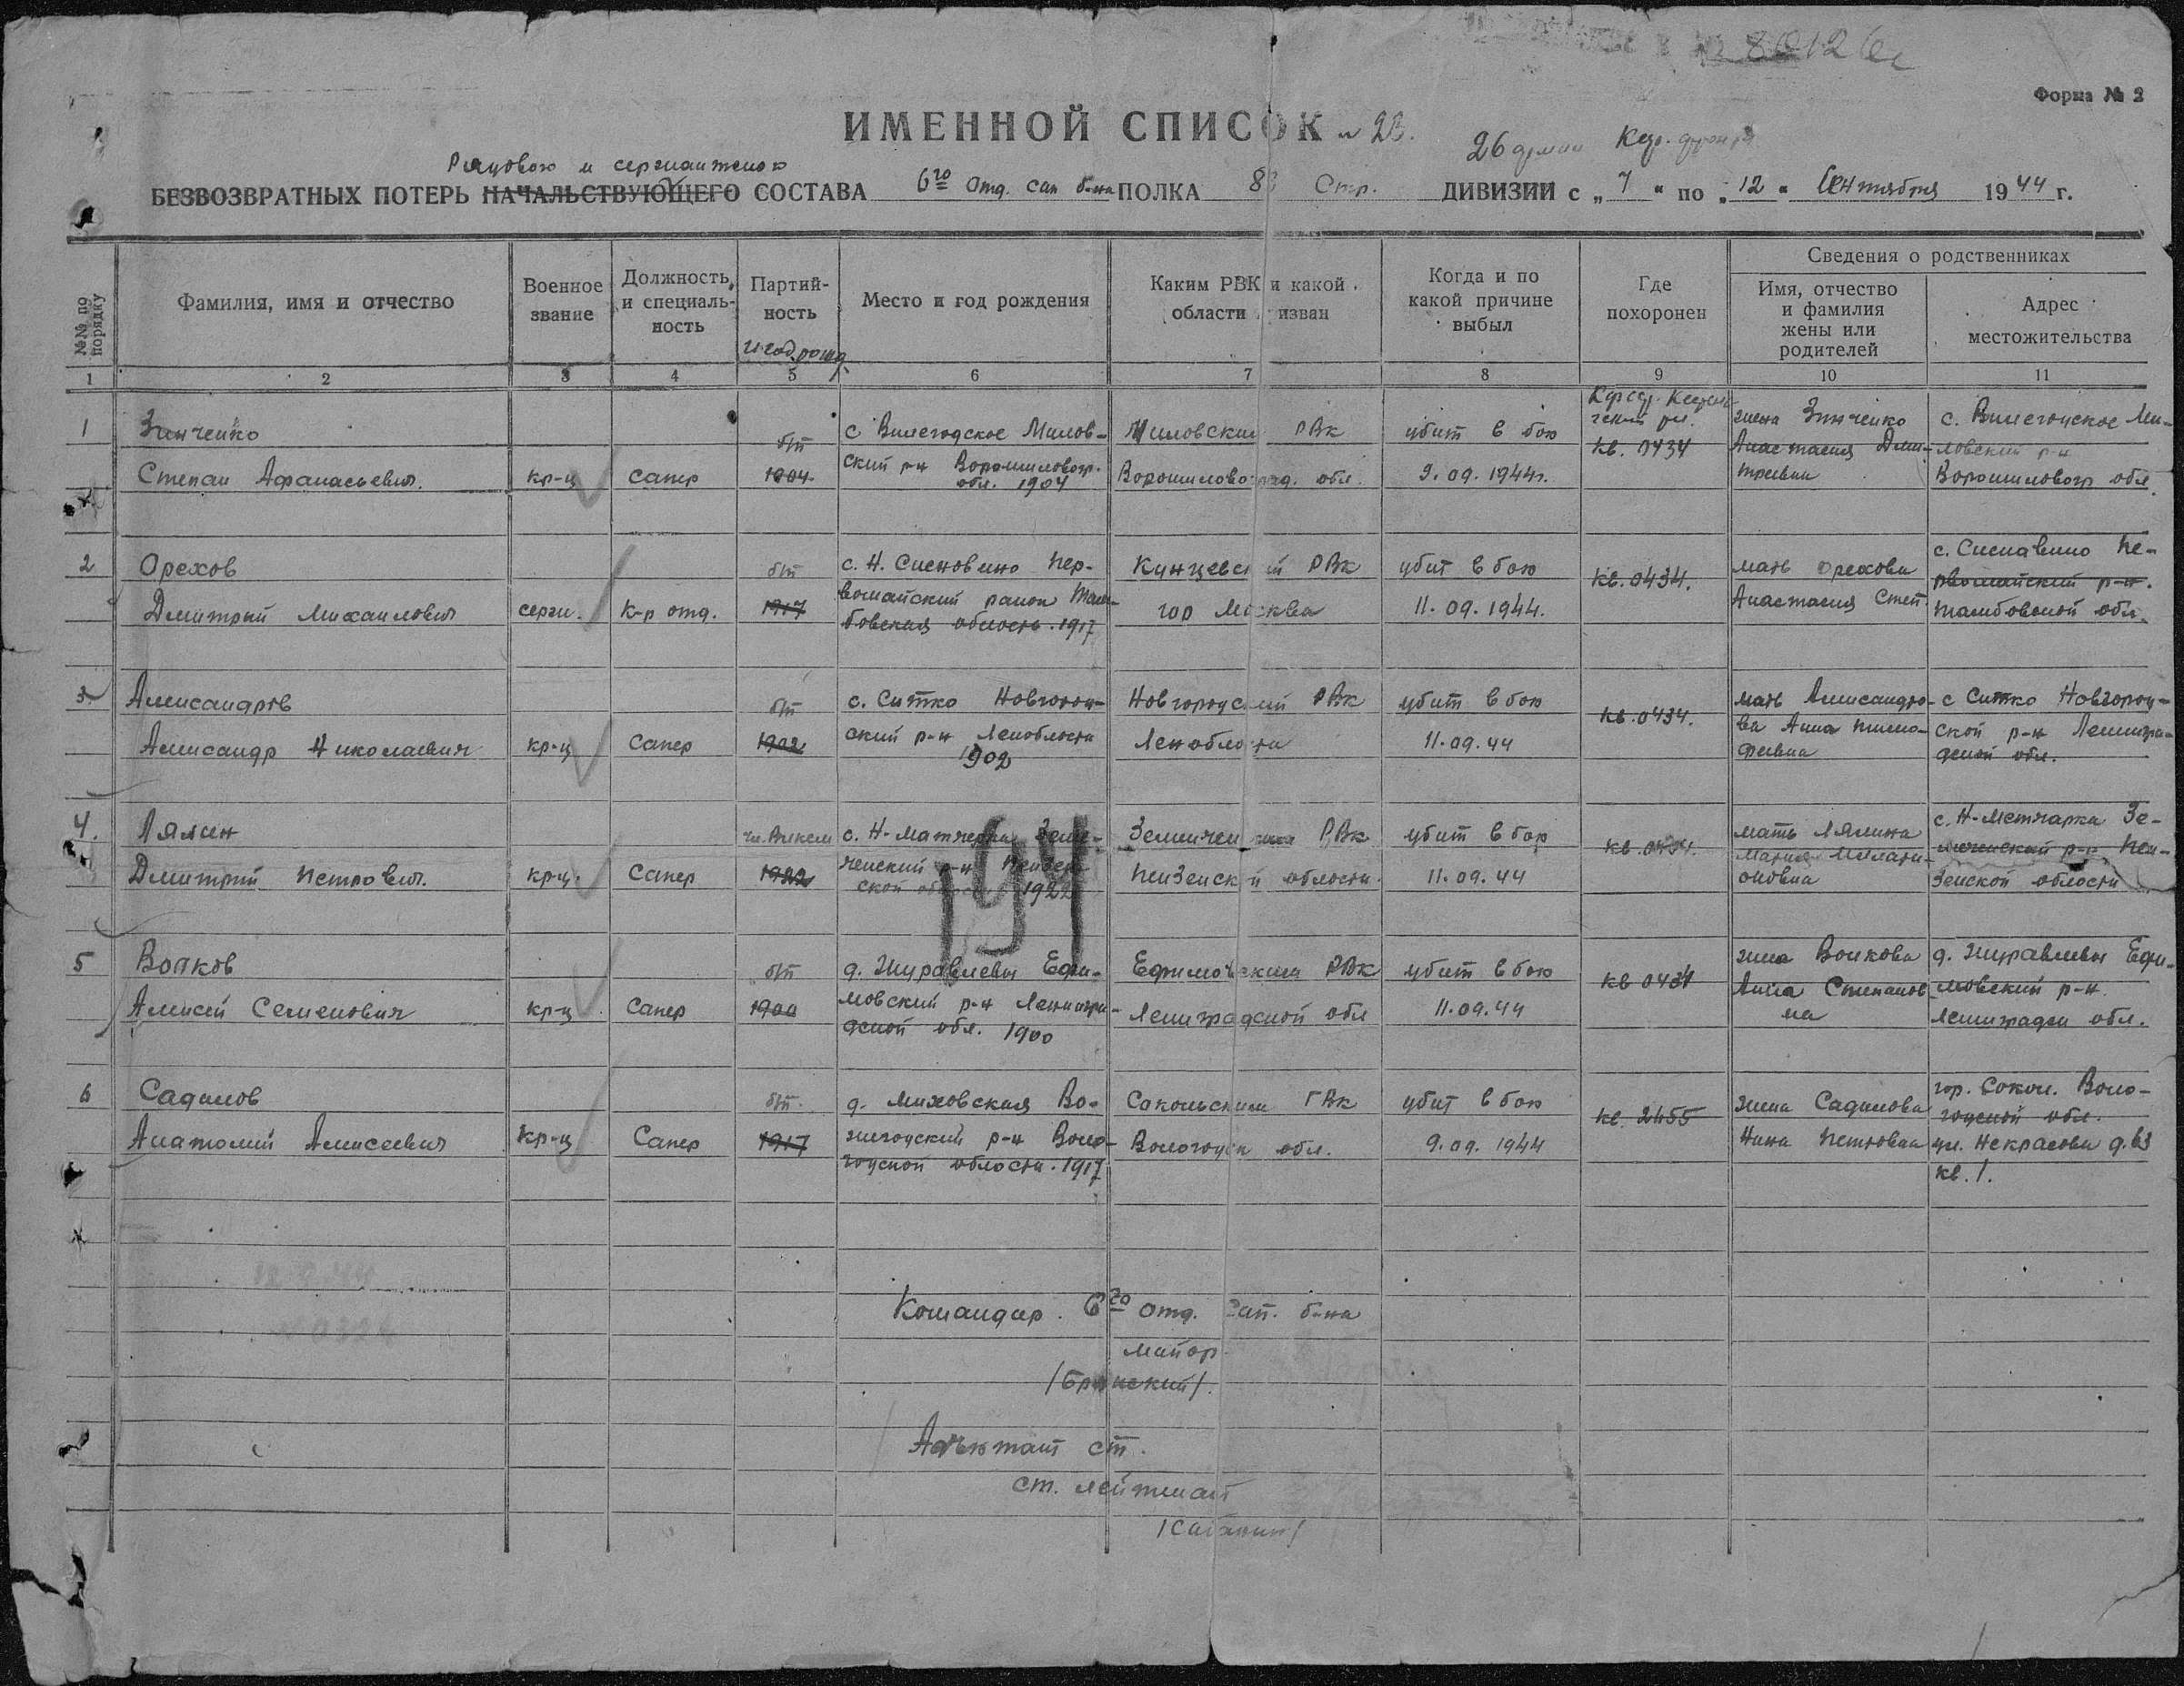 80126с
Форма № 2
ИМЕННОЙ СПИСОК № 23.
26 армии Кар. фронта
Рядового и сержантского
БЕЗВОЗВРАТНЫХ ПОТЕРЬ НАЧАЛЬСТВУЮЩЕГО СОСТАВА 6го отд. сап б-на ПОЛКА 83 Стр. ДИВИЗИИ с „7“ по „12“ Сентября 1944 г.
№№ по порядку
Фамилия, имя и отчество
Военное звание
Должность и специаль-
ность
Партий-
ность
и год рожд.
Место и год рождения
Каким РВК и какой
области призван
Когда и по
какой причине
выбыл
Где
похоронен
Сведения о родственниках
Имя, отчество
и фамилия
жены или
родителей
Адрес
местожительства
1 2 3 4 5 6 7 8 9 10 11
1 Зинченко
Степан Афанасьевич.
кр-ц
сапер
б/п
1904
с Вшегодское Милов-
ский р-н Ворошиловогр.
обл. 1904
Миловским РВК
Ворошиловоград. обл.
убит в бою
9.09.1944г.
кв. 0434
жена Зинченко
Анастасия Дми-
триевна
с. Вшегодское Ми-
ловский р-н
Ворошиловогр обл.
2 Орехов
Дмитрий Михаилович
серж.
к-р отд.
б/п
1917
с. Н. Сиеновино Пер-
вомайский район Там-
бовская область. 1917
Кунцевский РВК
гор Москва
убит в бою
11.09.1944.
кв. 0434.
мать Орехова
Анастасия Степ.
с. Сиенавино Пе-
рвомайский р-н.
Тамбовской обл.
3 Александров
Александр Николаевич
кр-ц
сапер
б/п
1902
с. Ситко Новгород-
ский р-н Ленобласти
1902
Новгородский РВК
Ленобласти
убит в бою
11.09.44
кв. 0434.
мать Александро-
ва Анна Тимо-
феевна
с Ситко Новгород-
ской р-н Ленингра-
дской обл.
4. Лялин
Дмитрий Петрович.
кр-ц.
Сапер
чл. ВЛКСМ
1922
с. Н-Матчерка Земе-
тченский р-н Пензен-
ской области 1922
191
Земетченским РВК
Пензенской области.
убит в бою
11.09.44
кв. 0434.
мать Лялина
Мария Миллари-
оновна
с. Н-Метчарка Зе-
метченский р-н Пен-
зенской области
5 Волков
Алексей Семенович
кр-ц
Сапер
б/п
1900
д. Журавлевы Ефи-
мовский р-н Ленингра-
дской обл. 1900
Ефимовским РВК
Ленинградской обл
убит в бою
11.09.44
кв 0434
жена Волкова
Анна Степанов-
на
д. Журавлевы Ефи-
мовский р-н.
Ленинградск обл.
6 Садилов
Анатолий Алексеевич
кр-ц
Сапер
б/п.
1917
д. Миховская Во-
жегодский р-н Воло-
годской области. 1917
Сокольским ГВК
Вологодск обл.
убит в бою
9.09.1944
кв. 2455
жена Садилова
Нина Петровна
гор. Сокол. Воло-
годской обл.
ул. Некрасова д. 63
кв. 1.
Командир 6го отд. сап. б-на
майор
/Брянский/.
Адъютант ст.
ст. лейтенант